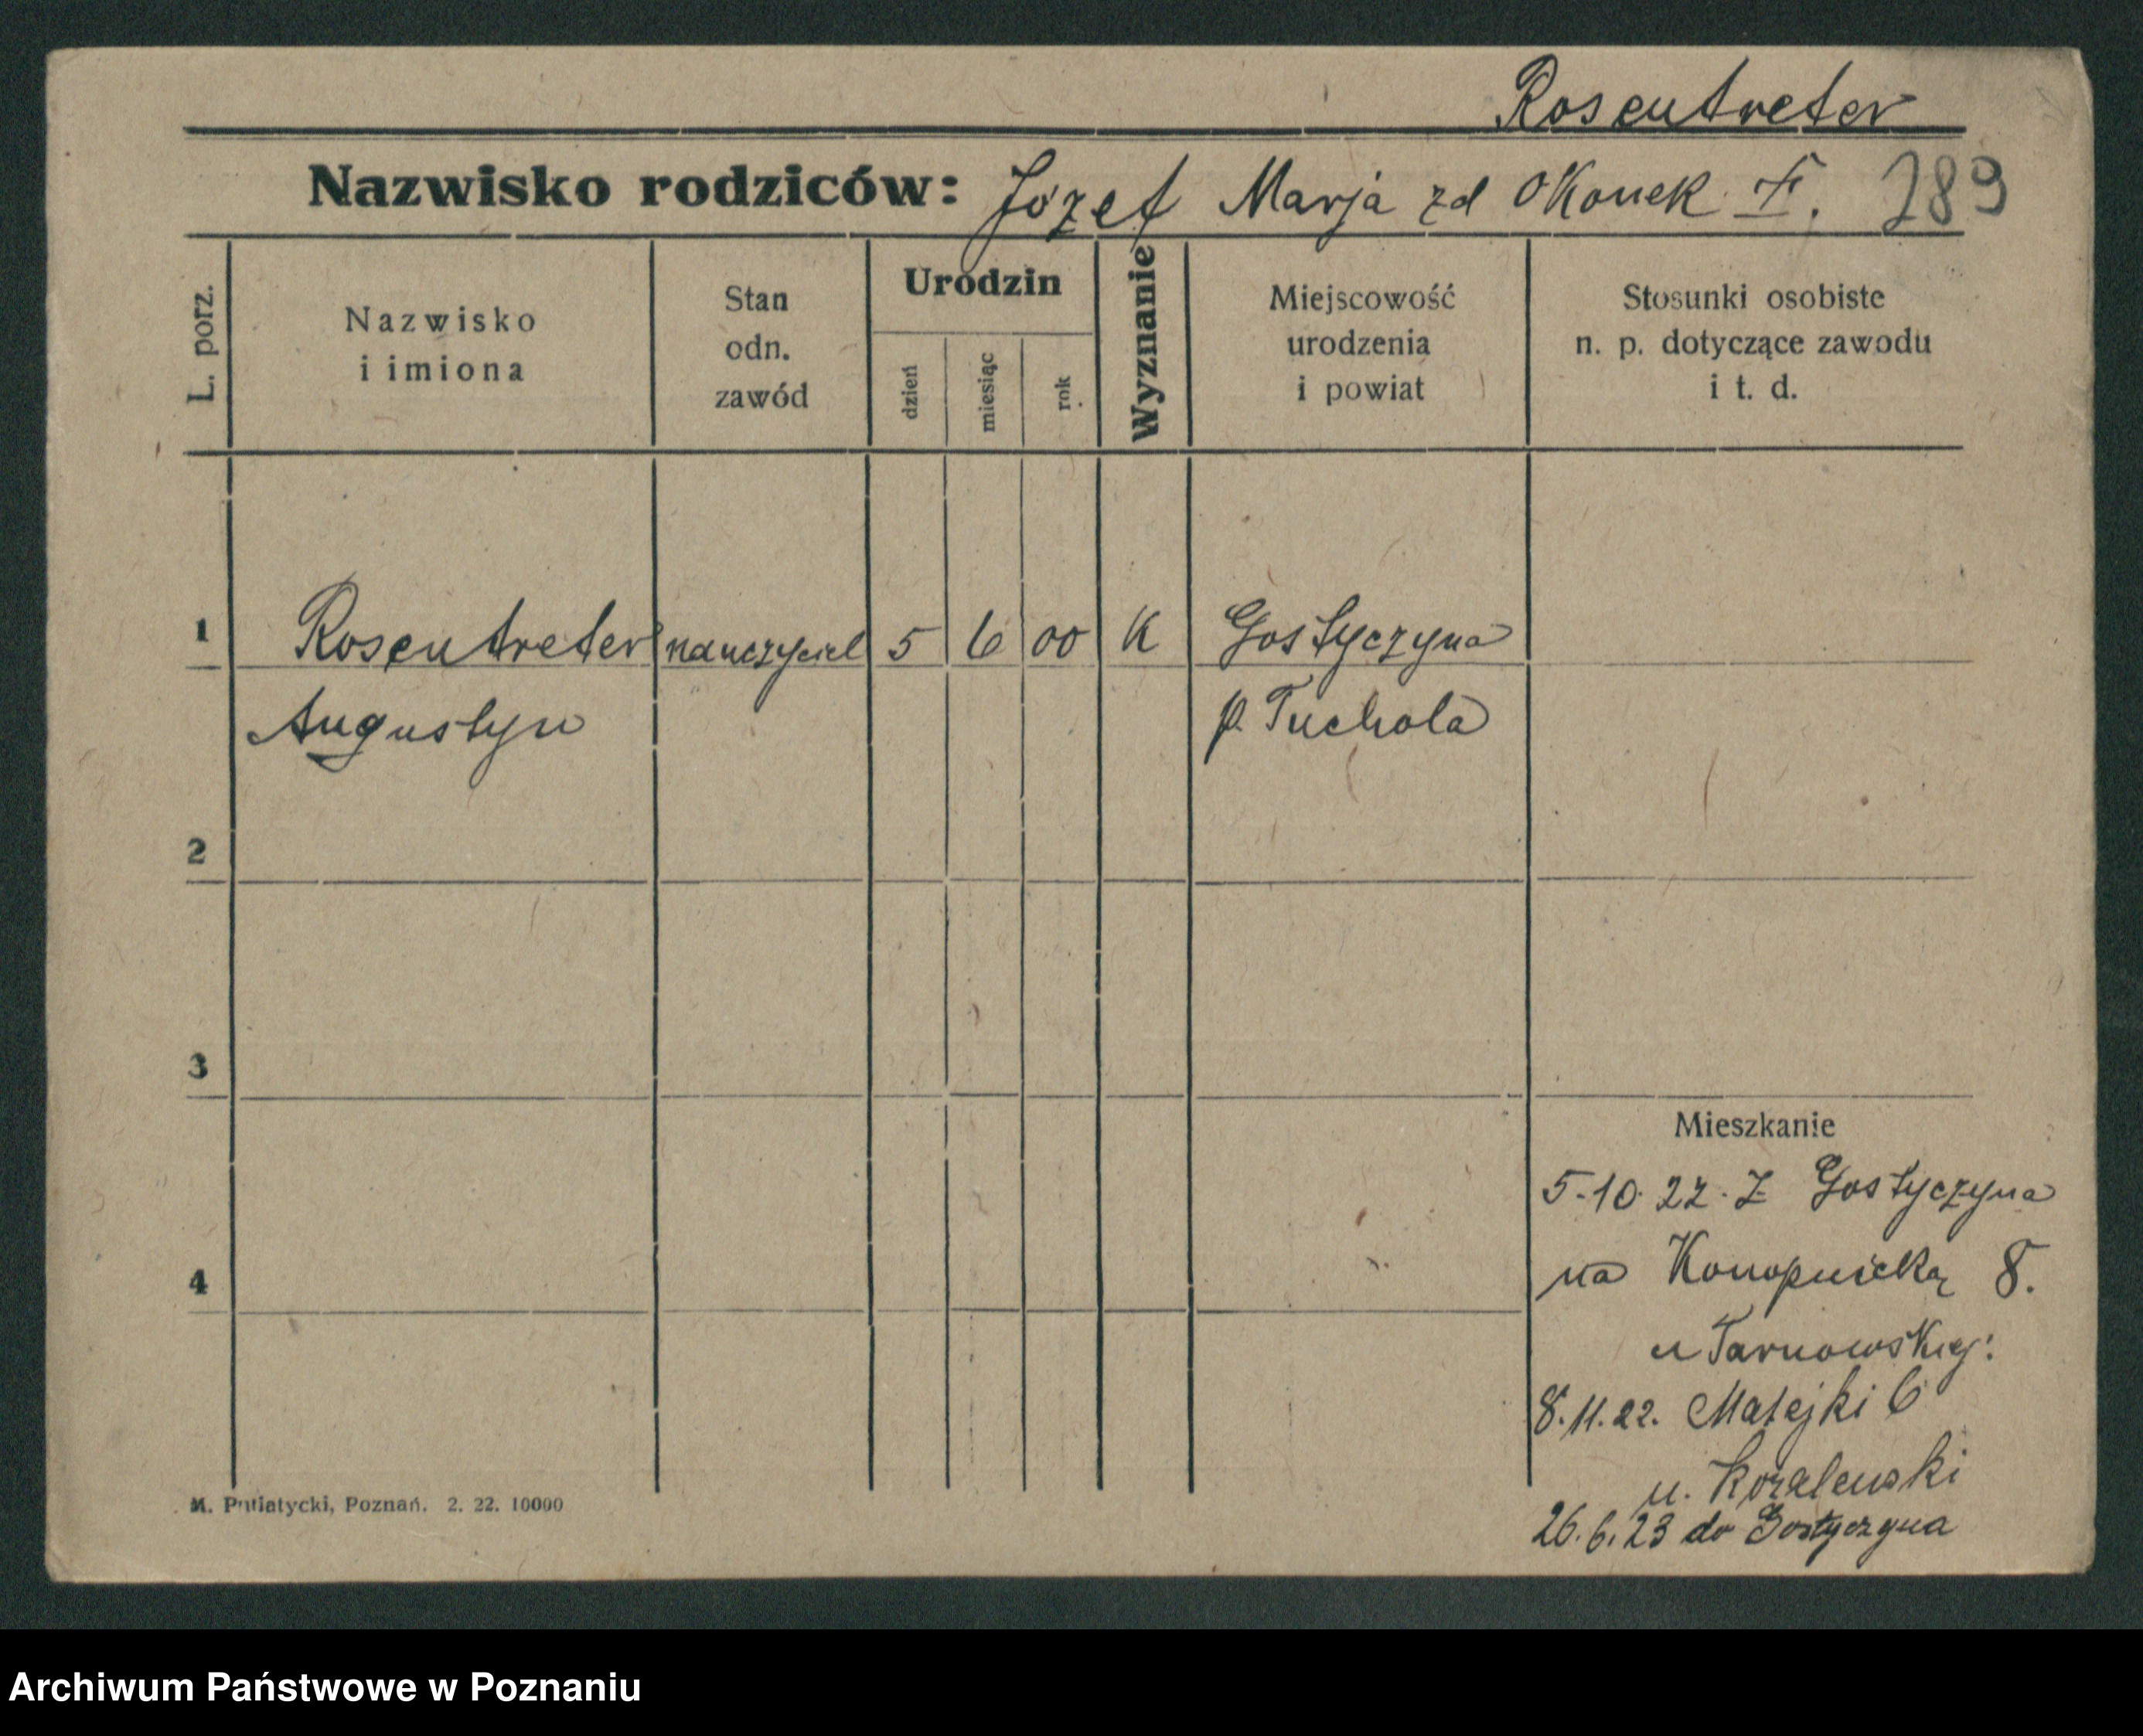 Rosentreter
Nazwisko rodziców: Józef Marja zd Okonek 289
L. porz.
Nazwisko
i imiona
Stan
odn.
zawód
Urodzin
dzień
miesiąc
rok
Wyznanie
Miejscowość
urodzenia
i powiat
Stosunki osobiste
n. p. dotyczące zawodu
i t. d.
1 Rosentreter nauczyciel 5 6 00 K Gostyczyna
Augustyn p. Tuchola
2
3
Mieszkanie
5.10.22. Z Gostyczyna
4 na Konopnicką 8.
u Tarnowskiej:
8.11.22. Matejki 6
u. Kozalewski
M. Putiatycki, Poznań. 2. 22. 10000
26.6.23 do Gostyczyna
Archiwum Państwowe w Poznaniu